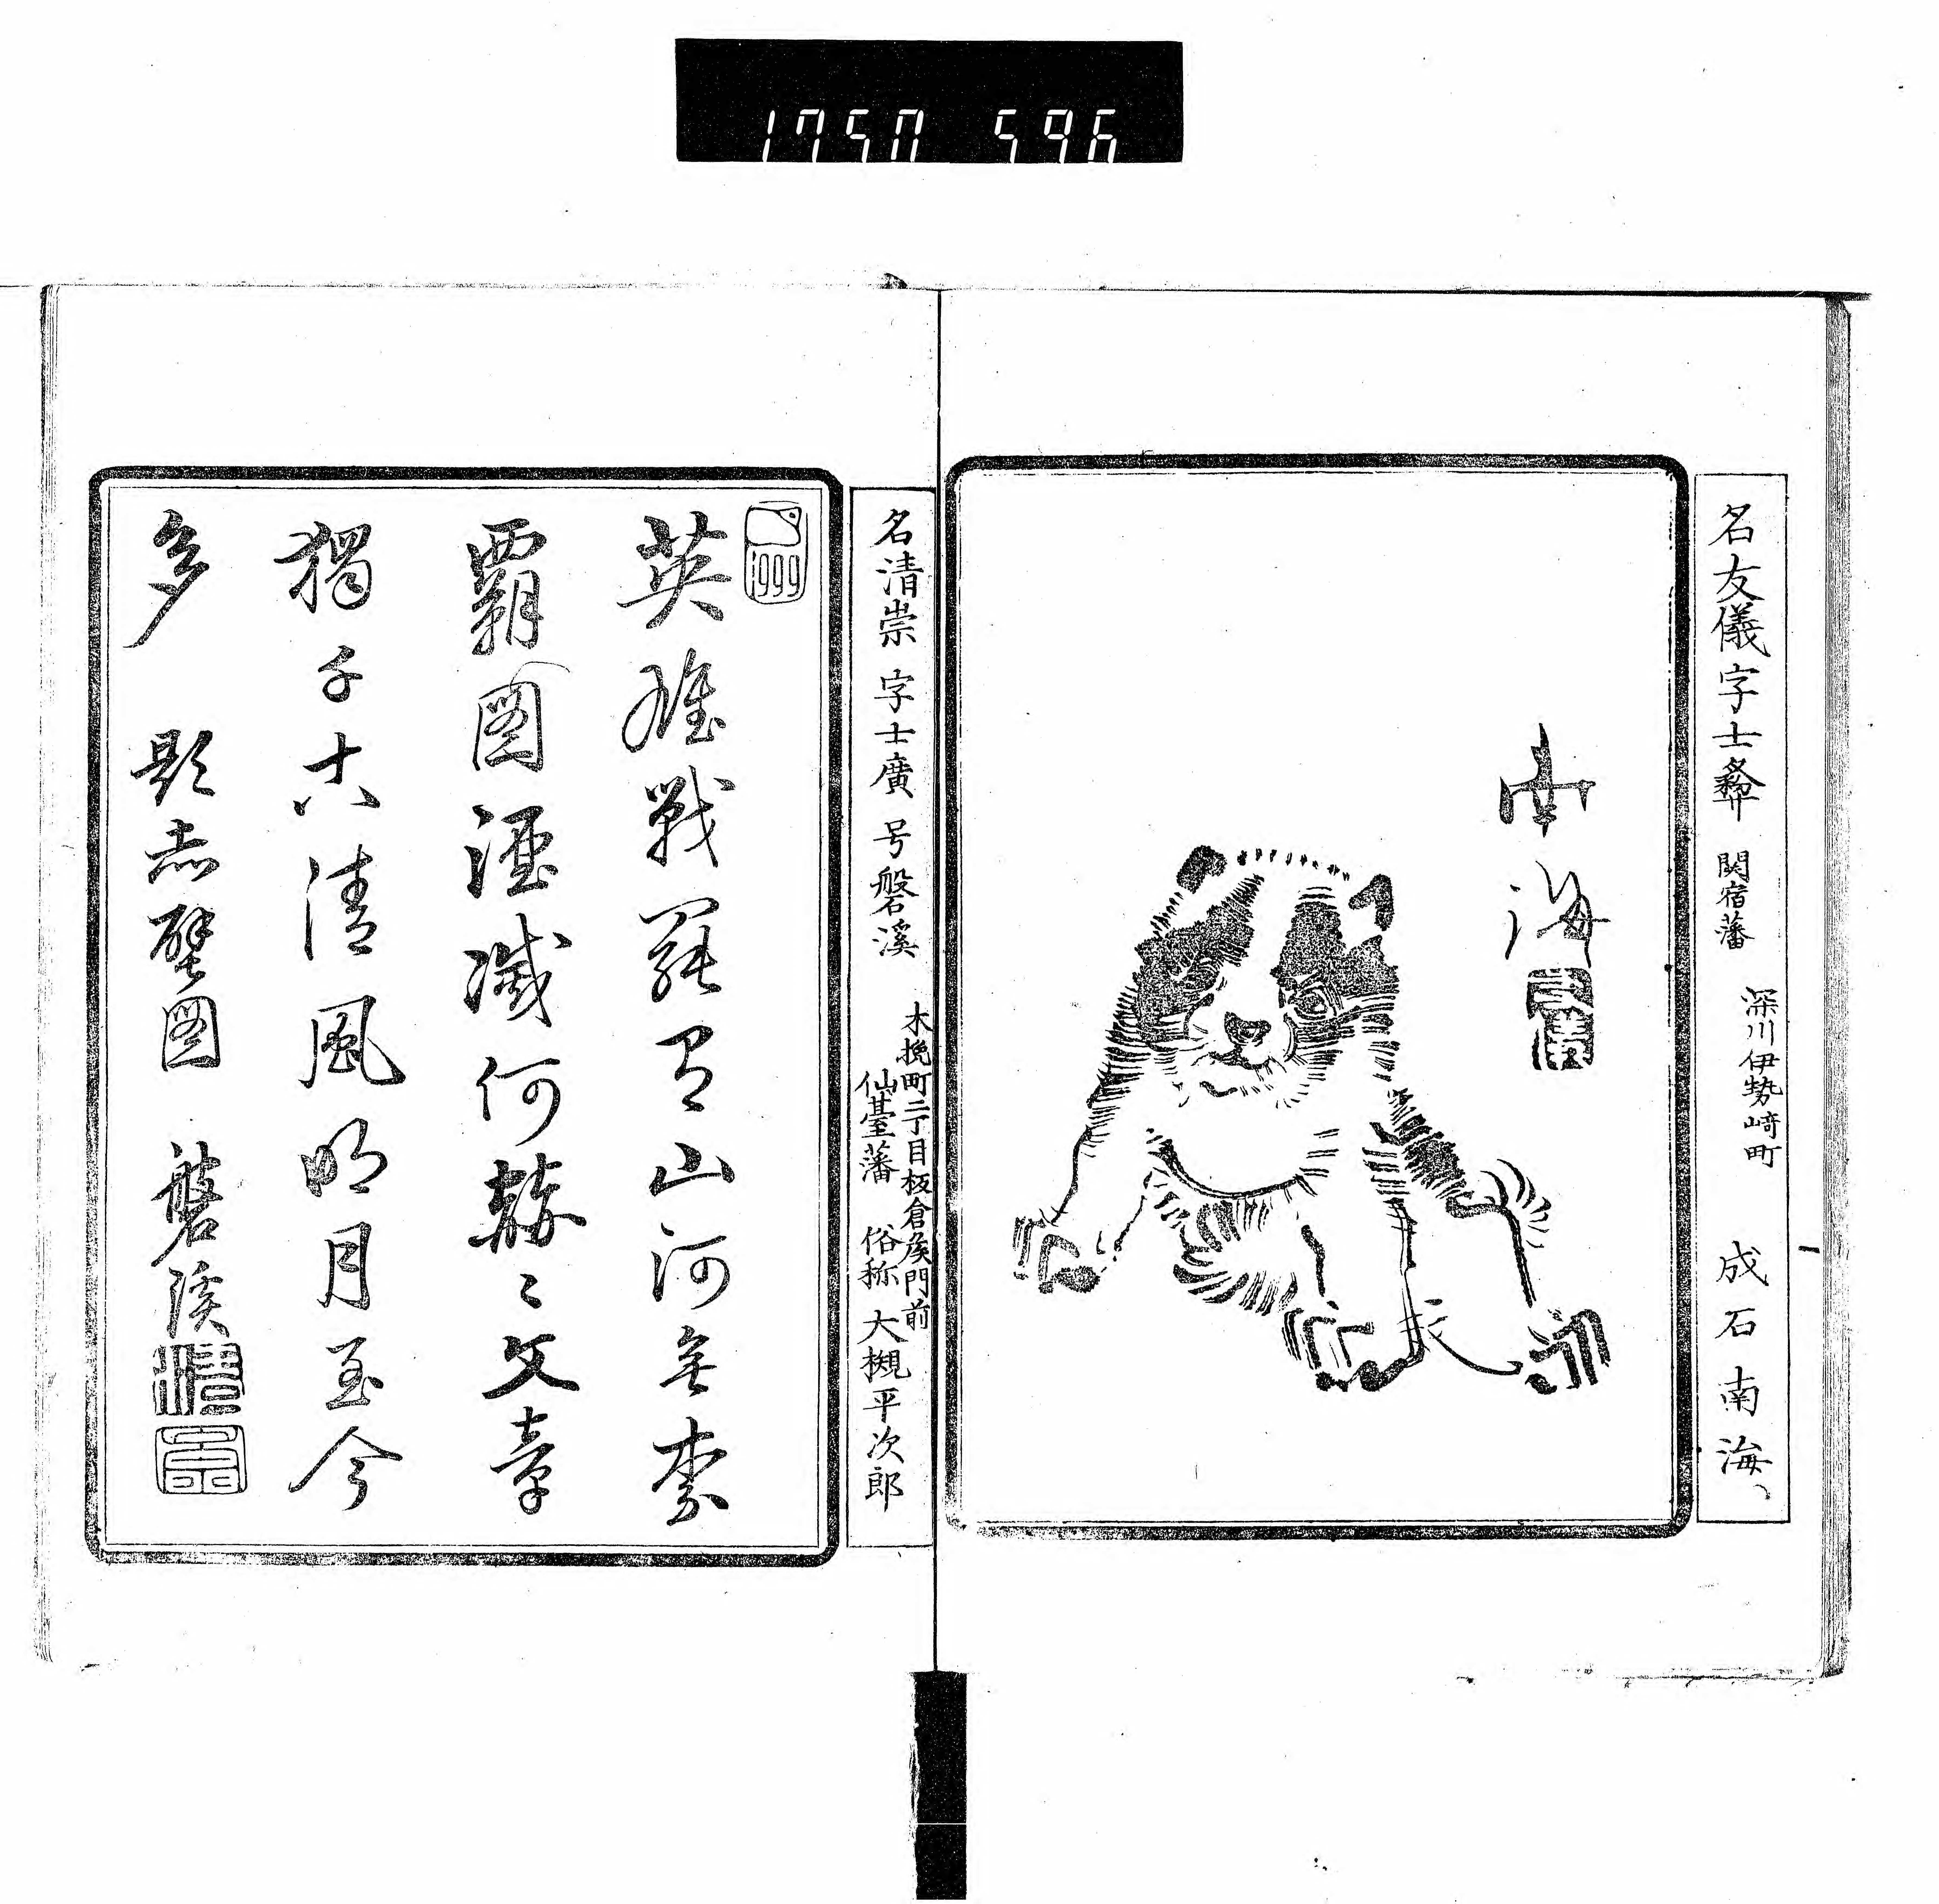 1750 596
名友儀字士彜 関宿藩 深川伊勢崎町 成石南海
南海
名清崇 字士廣 号磐溪 木挽町二丁目板倉侯門前 仙臺藩 俗称 大槻平次郎
英雄戰罷有山河無柰
覇圖湮滅何赫々文章
獨千古清風明月至今
多 題赤壁圖 磐溪